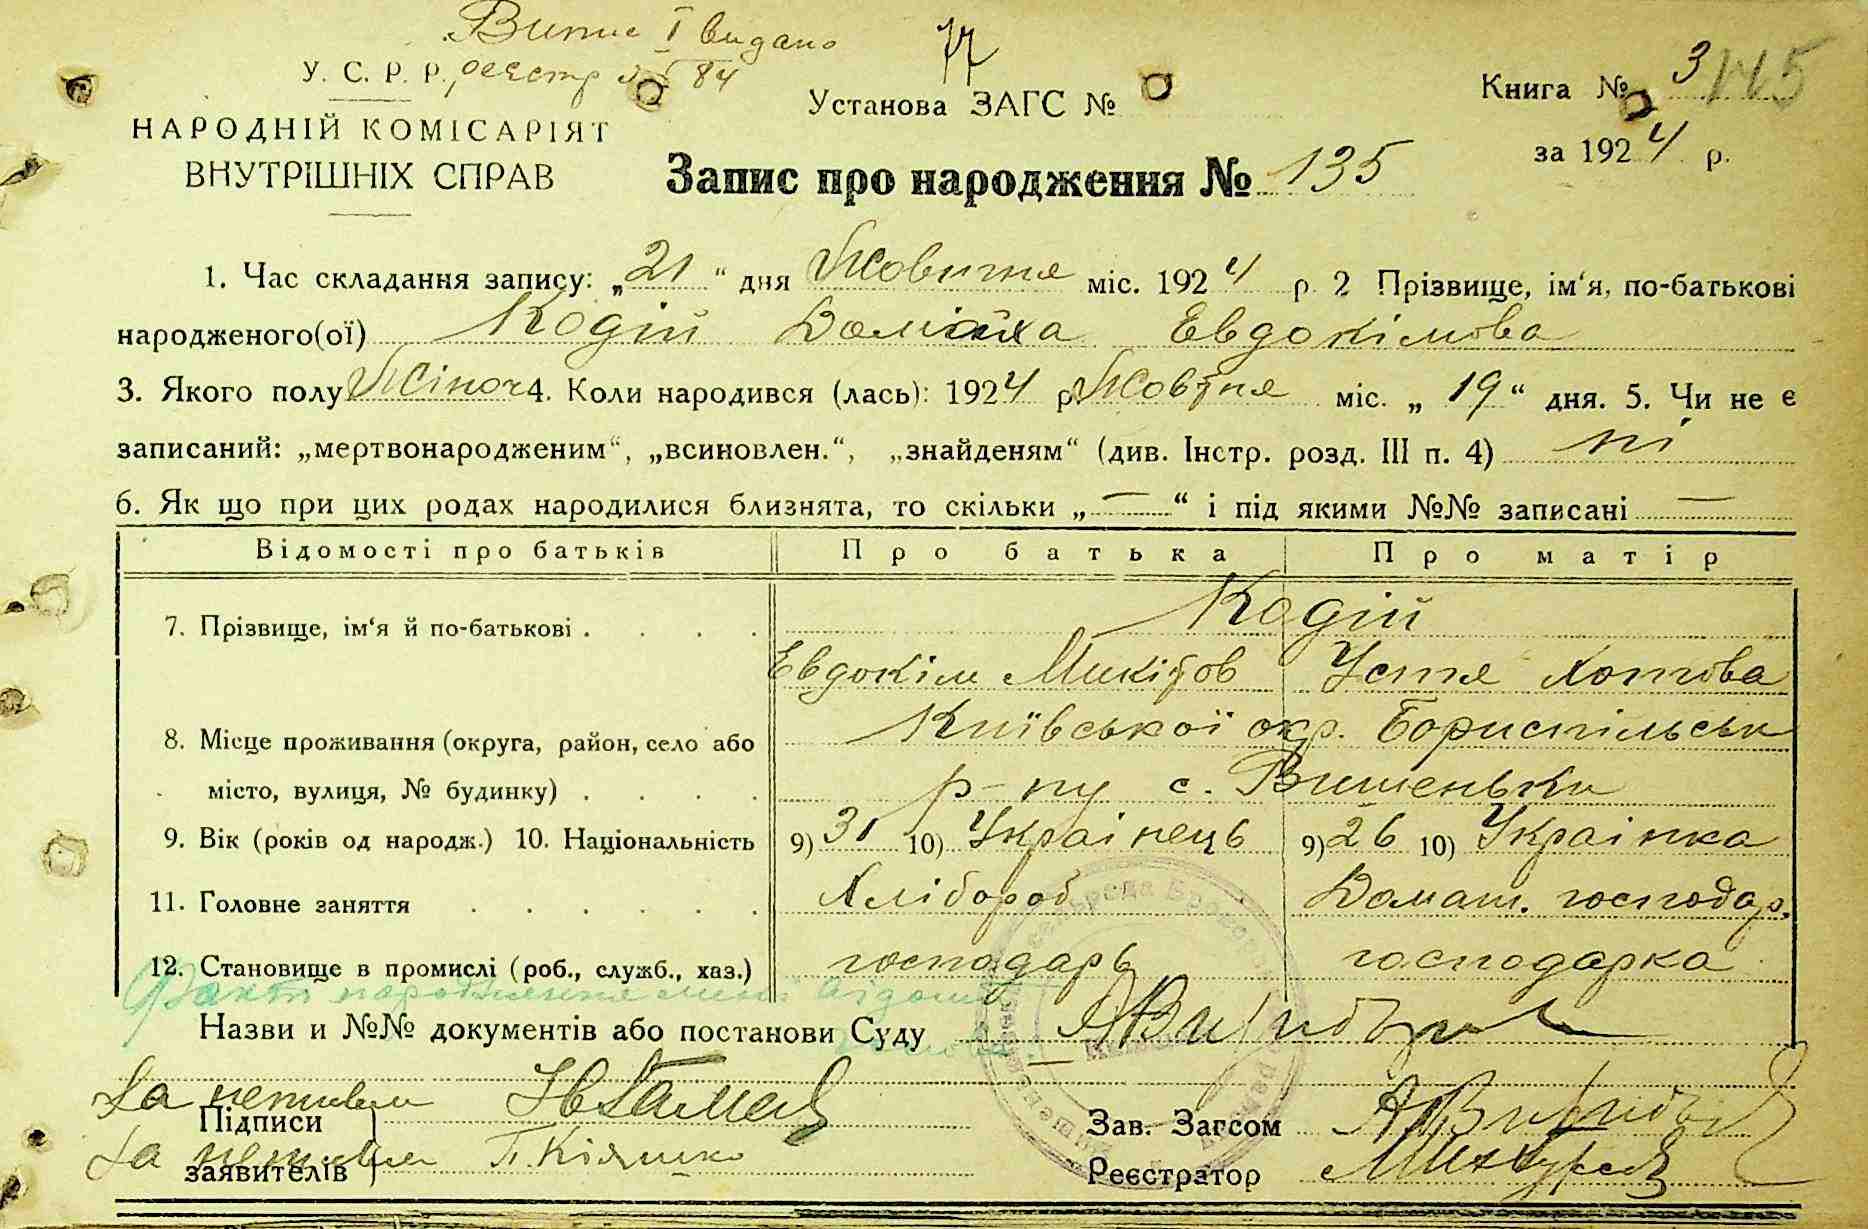 Випис I видано
У. С. Р. Р. реєстр 84
НАРОДНІЙ КОМІСАРІЯТ
ВНУТРІШНІХ СПРАВ
77
Установа ЗАГС №
Книга № 3 145
за 1924 р.
Запис про народження № 135
1. Час складання запису: „21“ дня Жовтня міс. 1924 р 2 Прізвище, ім‘я, по-батькові
народженого(ої) Кодій Домаха Евдокімова
3. Якого полу Жіноч 4. Коли народився (лась): 1924 р Жовтня міс. „19“ дня. 5. Чи не є
записаний: „мертвонародженим“, „всиновлен.“, „знайденям“ (див. Інстр. розд. III п. 4) ні
6. Як що при цих родах народилися близнята, то скільки „—“ і під якими №№ записані —
Відомості про батьків Про батька Про матір
7. Прізвище, ім‘я й по-батькові . . . . Кодій
Евдокім Микітов Устя
8. Місце проживання (округа, район, село або Київської окр. Бориспільськ
місто, вулиця, № будинку) . . . . р-ну с. Вишеньки
9. Вік (років од народж.) 10. Національність 9) 31 10) Украінець 9) 26 10) Украінка
11. Головне заняття . . . . . . Хлібороб Домаш. господар.
12. Становище в промислі (роб., служб., хаз.) господарь господарка
Факт народження мені відомий
Назви и №№ документів або постанови Суду
За неписьм
Підписи
заявителів
За неписьм П. Кіяшко
Зав. Загсом
Реєстратор